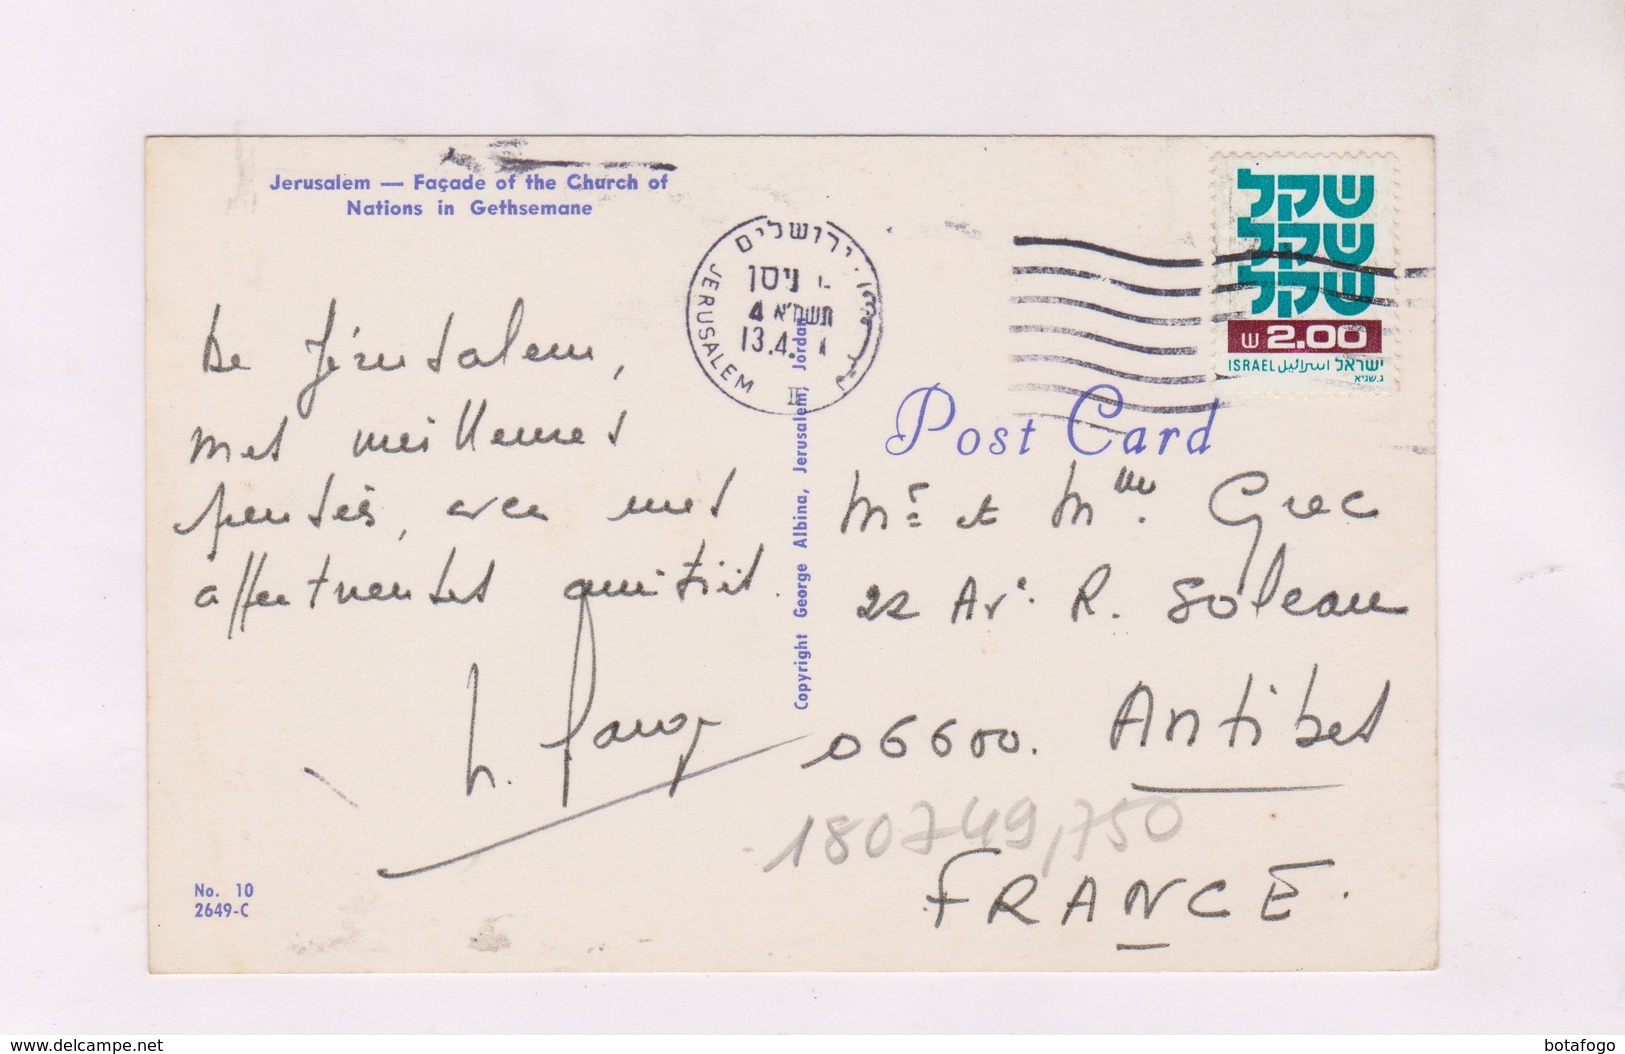 Jerusalem — Façade of the Church of
Nations in Gethsemane
De Jérusalem,
mes meilleures
pensées, avec mes
affectueuses amitiés.
No. 10
2649-C
Copyright George Albina, Jerusalem, Jordan
ירושלים
JERUSALEM
ניסן
תשמ"א 4
13.4.
II
שקל
שקל
שקל
ש 2.00
ISRAEL اسرائيل ישראל
Post Card
Mr et Mme. Grec
22 Av. R. Soleau
06600. Antibes
180749,750
FRANCE.
www.delcampe.net
botafogo